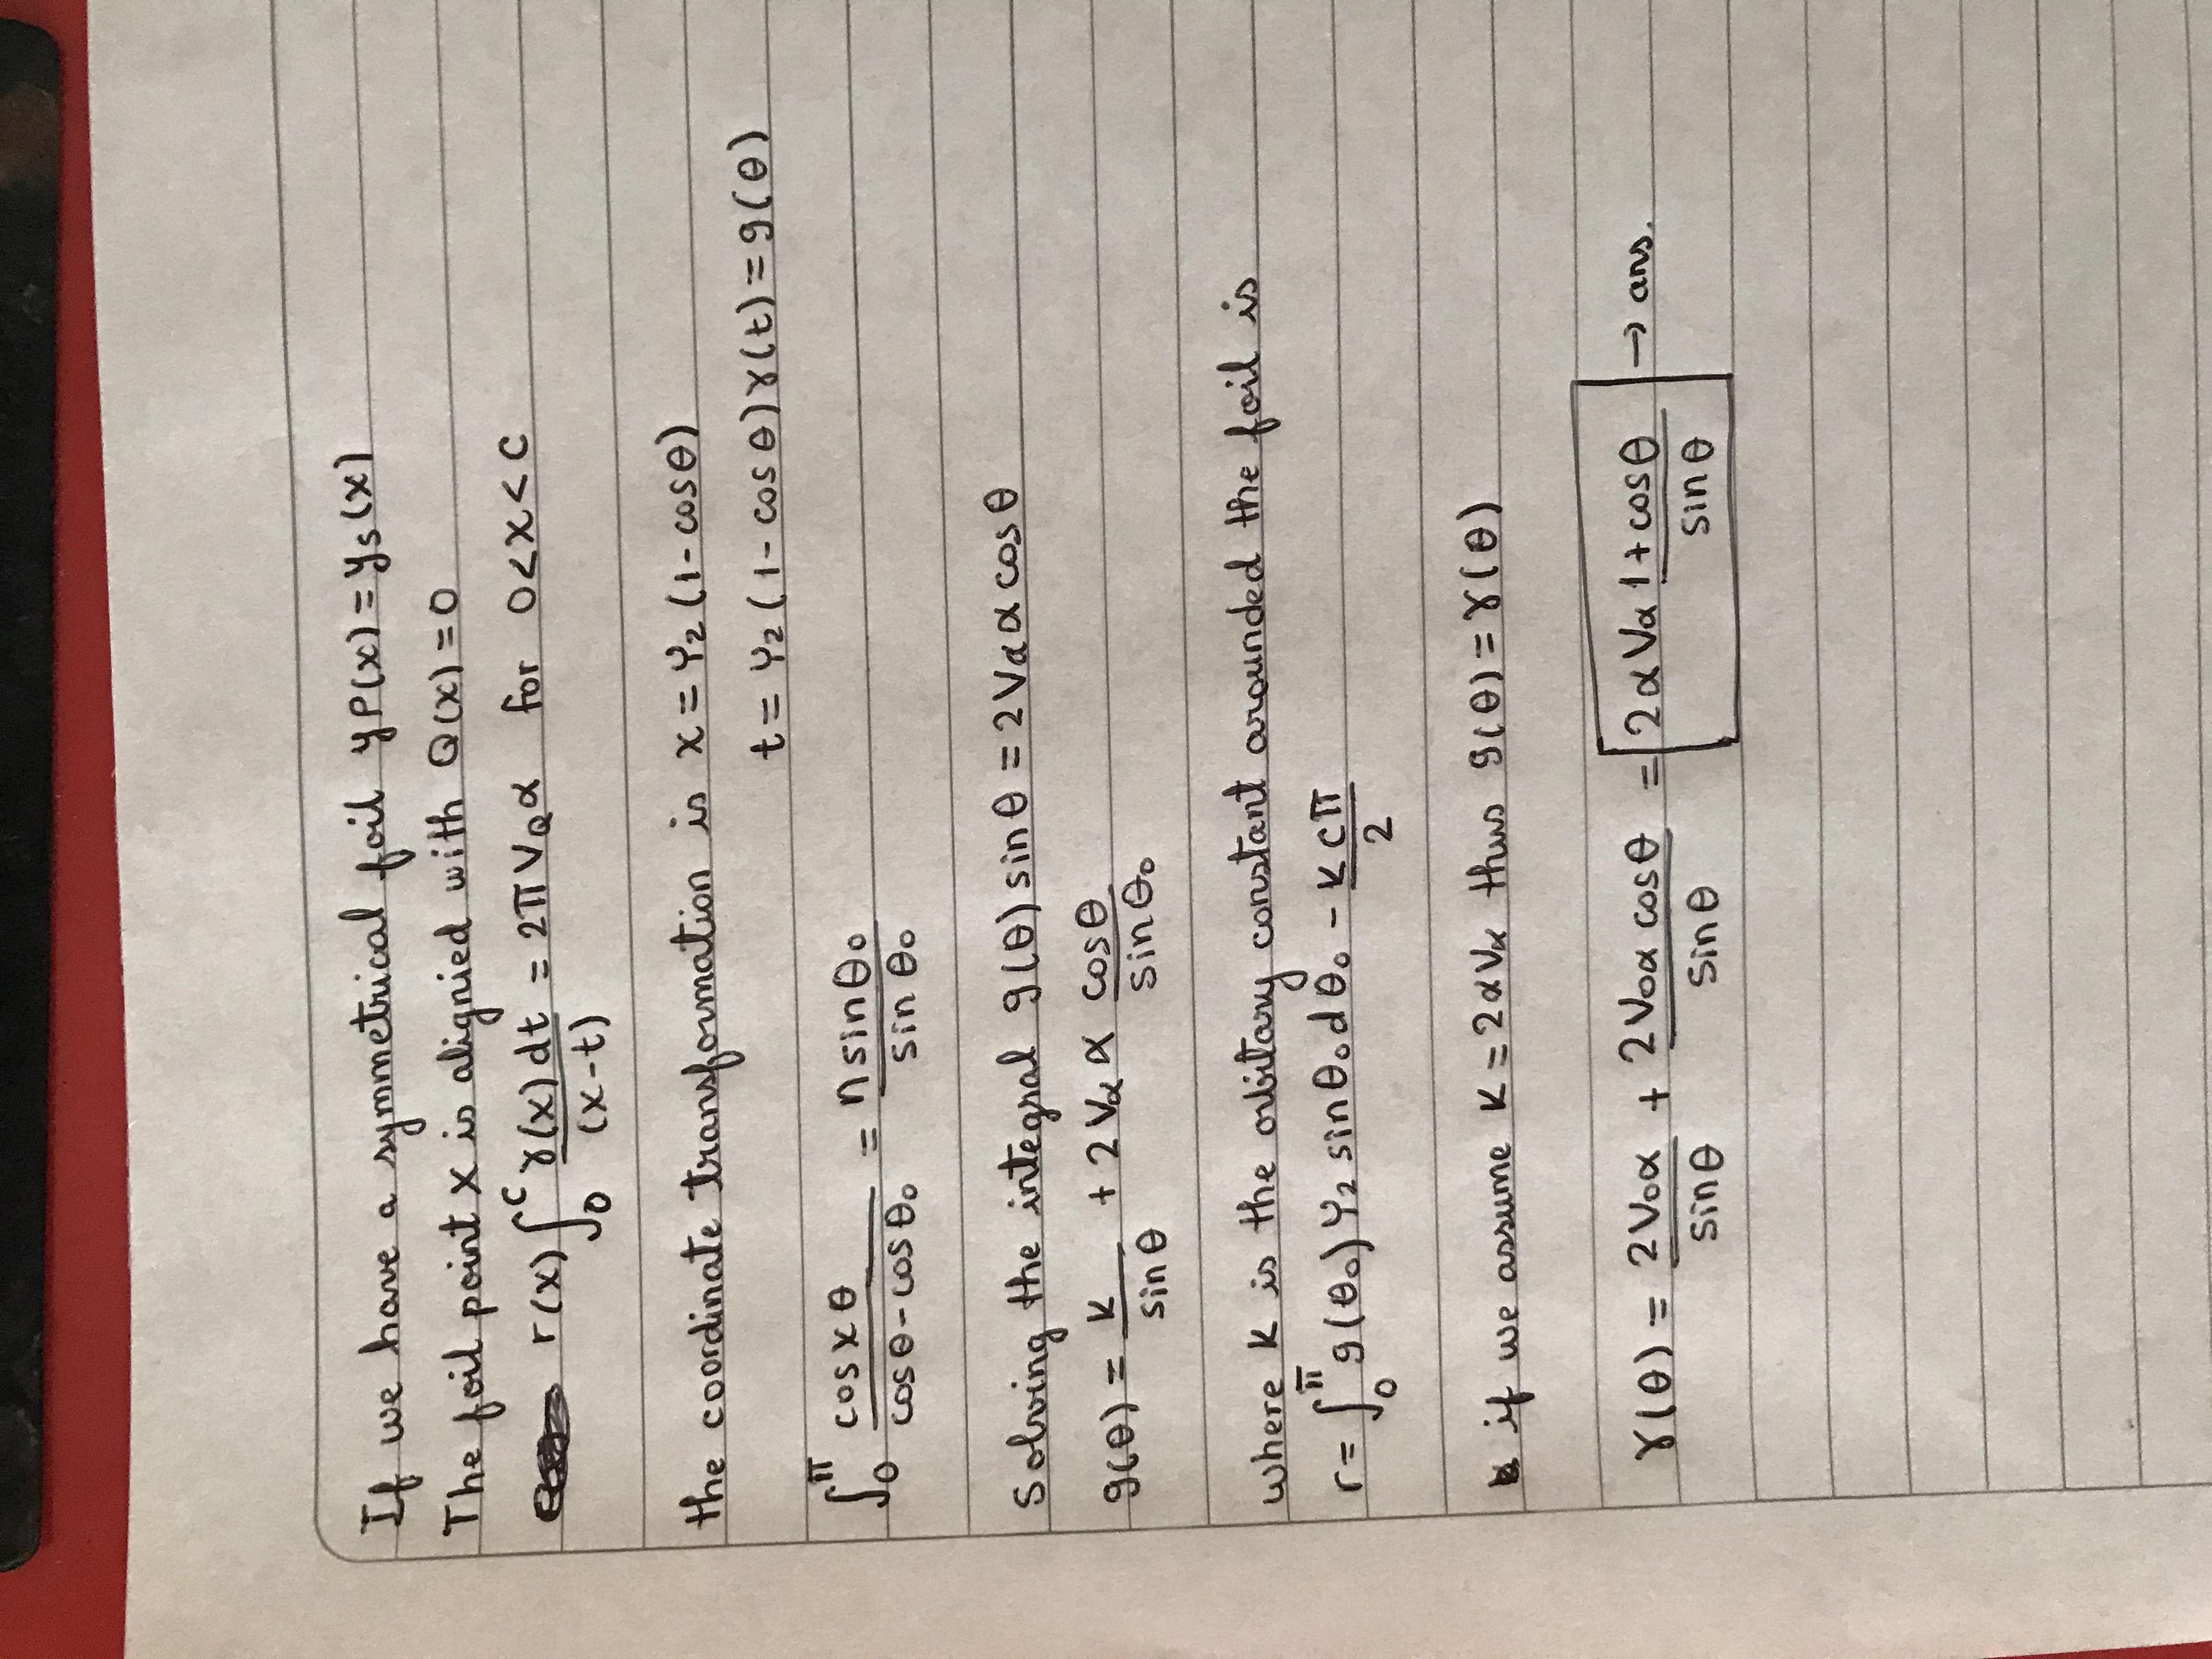 If we have a symmetrical foil yP(x) = ys(x)
The foil point x is alignied with Q(x) = 0
r(x) ∫₀ᶜ γ(x)dt/(x-t) = 2π Vₐα for 0<x<c
the coordinate transformation is x = Y₂(1-cosθ)
t = Y₂(1-cosθ) γ(t) = g(θ)
∫₀^π cos x θ/(cosθ-cosθ₀) = n sinθ₀/sinθ₀
Solving the integral g(θ) sinθ = 2Vₐα cosθ
g(θ) = K/sinθ + 2Vαα cosθ/sinθ₀
where K is the orbitary constant arounded the foil is
r = ∫₀^π g(θ₀) Y₂ sinθ₀ dθ₀ - KCπ/2
if we assume K = 2αVα thus g(θ) = γ(θ)
γ(θ) = 2V₀α/sinθ + 2V₀α cosθ/sinθ = 2αVα 1+cosθ/sinθ → ans.